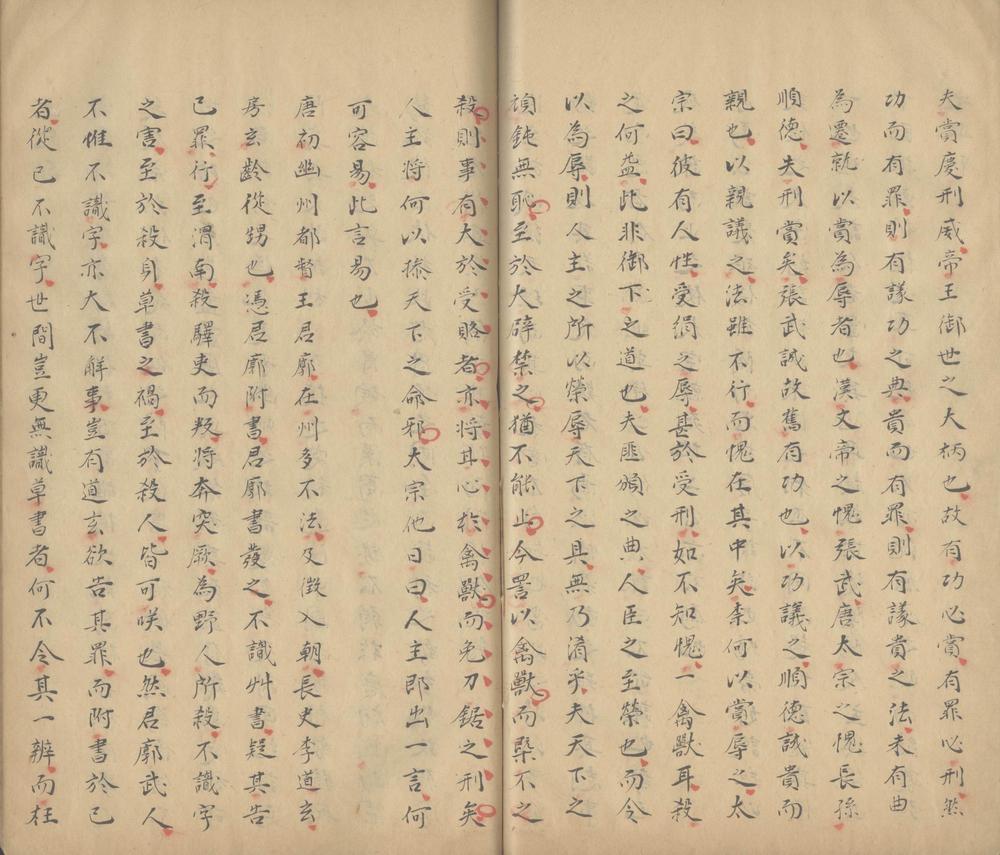 夫賞慶刑威帝王御世之大柄也故有功必賞有罪必刑然
功而有罪則有議功之典貴而有罪則有議貴之法未有曲
為遷就以賞為辱者也漢文帝之愧張武唐太宗之愧長孫
順德夫刑賞矣張武誠故舊有功也以功議之順德誠貴而
親也以親議之法雖不行而愧在其中矣柰何以賞辱之太
宗曰彼有人性受絹之辱甚於受刑如不知愧一禽獸耳殺
之何益此非御下之道也夫匪頒之典人臣之至榮也而今
以為辱則人主之所以榮辱天下之具無乃淆乎夫天下之
頑鈍無恥至於大辟禁之猶不能止今詈以禽獸而槩不之
殺則事有大於受賂者亦將其心於禽獸而免刀鋸之刑矣
人主將何以操天下之命邪太宗他日曰人主即出一言何
可容易此言易也
唐初幽州都督王君廓在州多不法及徵入朝長史李道玄
房玄齡從甥也憑君廓附書君廓書發之不識艸書疑其告
己罪行至渭南殺驛吏而叛將奔突厥為野人所殺不識字
之害至於殺身草書之禍至於殺人皆可咲也然君廓武人
不惟不識字亦大不解事豈有道玄欲告其罪而附書於己
者從己不識字世間豈更無識草書者何不令其一辨而枉